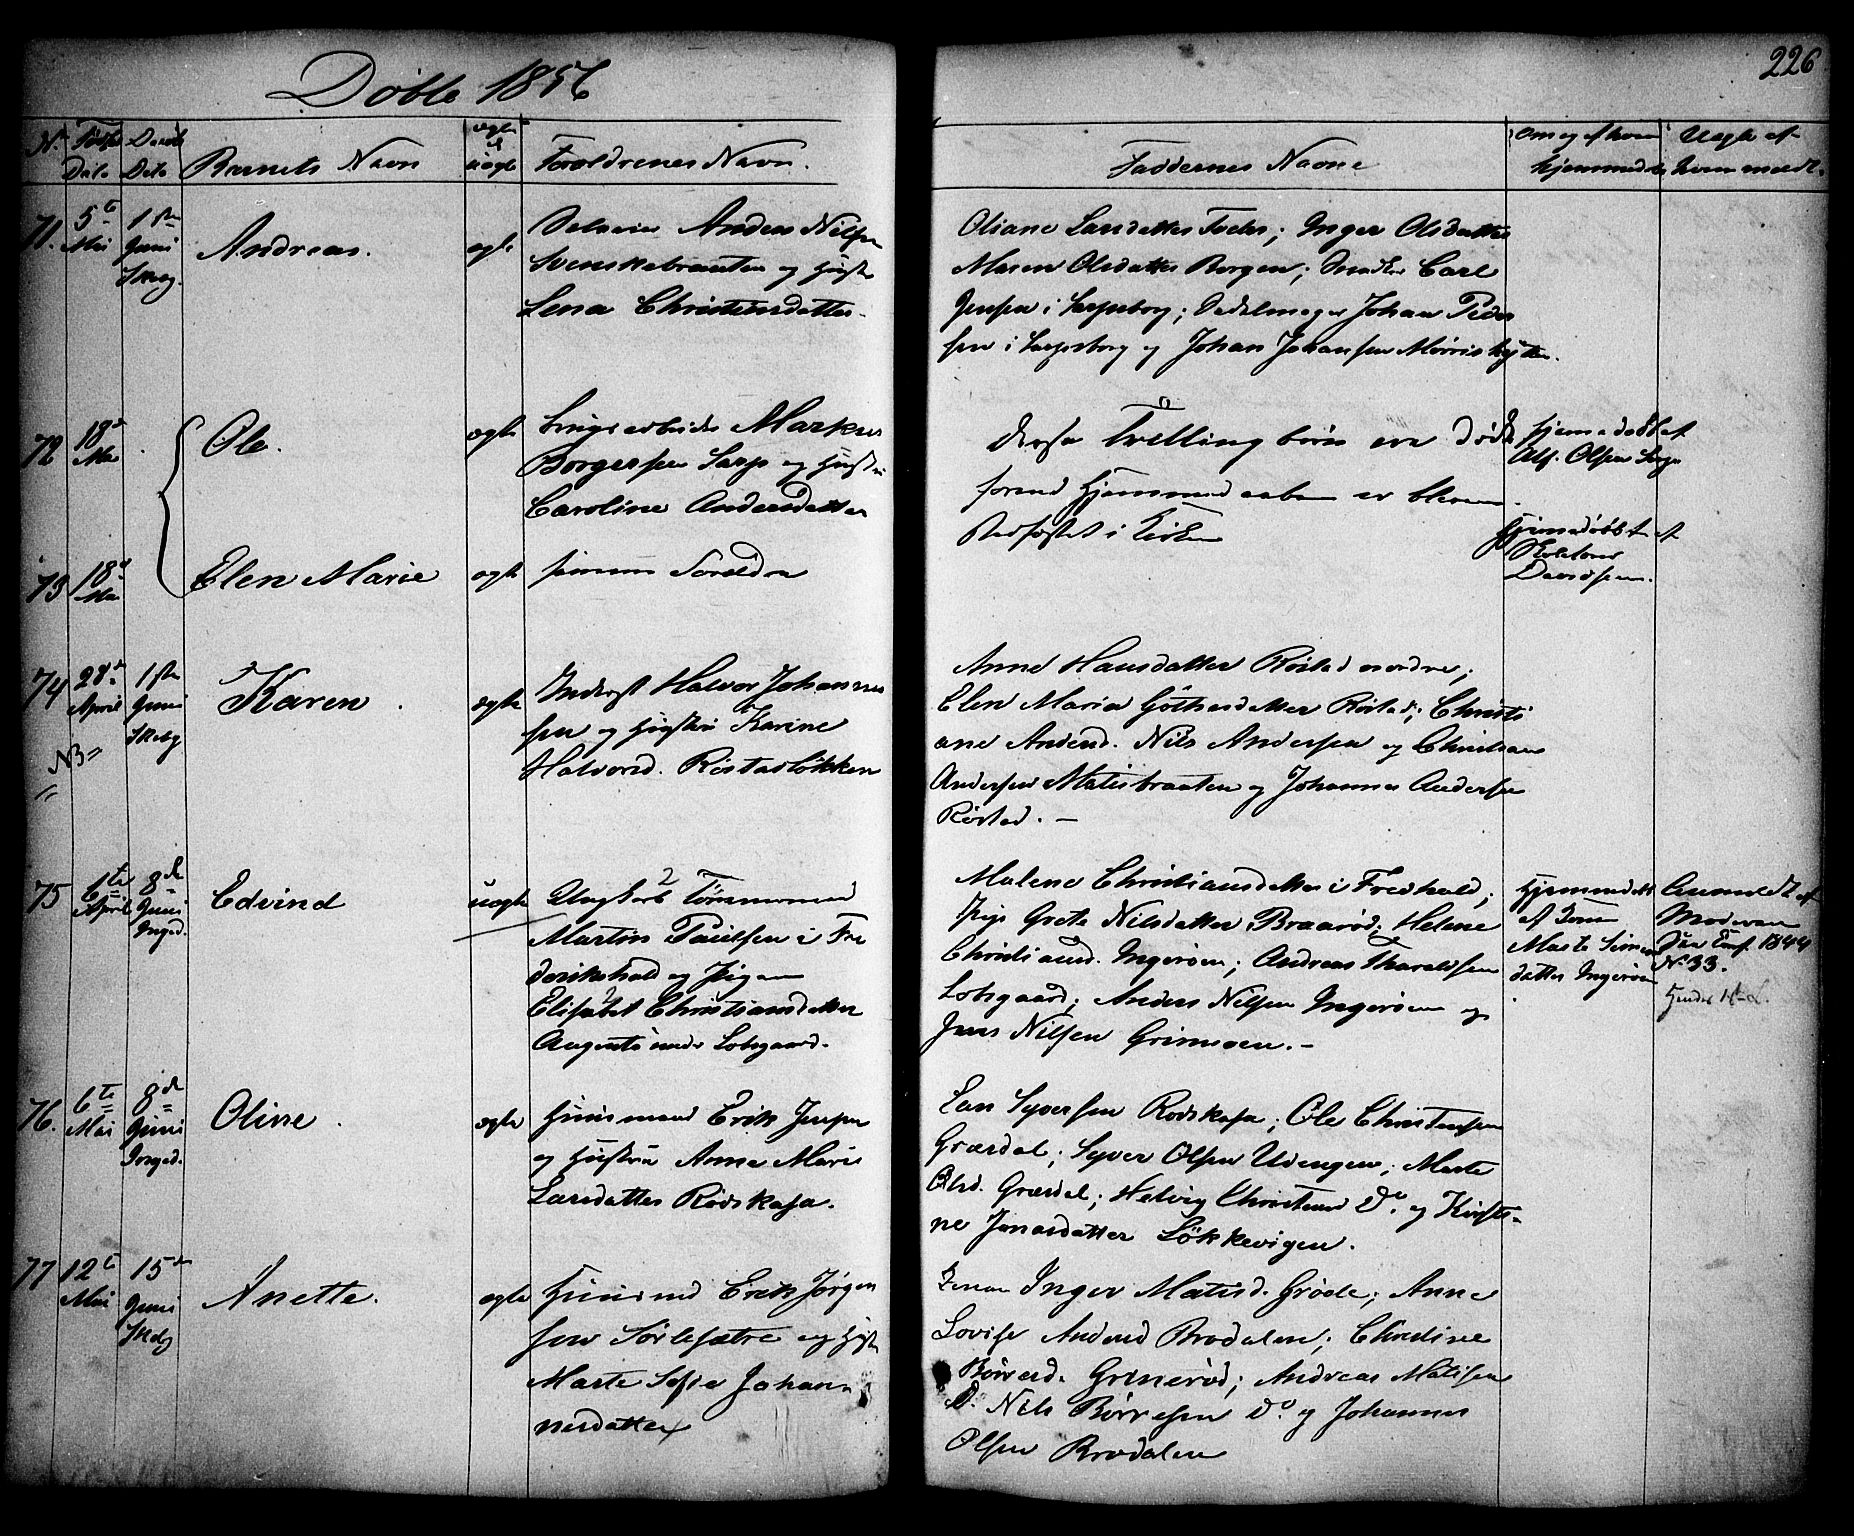 Døbte 1856
226
No Fødsels Date Daabs Date Barnets Navn ægte el uægte Forældrenes Navn.
Faddernes Navne Om og af hvem hjemmedøbt Uægte af hvem meldt.
71. 5te Mai 1ste Juni Skeb. Andreas. ægte
Anders Nilsen
Svenskebraaten og Hustr
Lena Christensdatter
Oliane Larsdatter; Inger Olsdatter
Maren Olsdatter Borgen; Carl
Jensen i Sarpsborg; Johan Peder
sen i Sarpsborg og Johan Johansen
72 18de Mai Ole. ægte
Markus
Borgersen Sarp og Hustru
Caroline Andersdatter
Disse Tvillingbørn ere døde
forend Hjemmedaaben er bleven
Stadfæstet i Kirken
Hjemmedøbt af
Olsen Sarp
73 18de Mai Elen Marie ægte samme Foreldre
Hjemmedøbt af
Skolelærer
Davidsen.
74 28de April 1ste Juni Skeby Karen. ægte
NB
Inderst Halvor Johannes
sen og Hustru Karine
Halvorsd. Röstadløkken
Anne Hansdatter Röstad nordre;
Elen Maria Röstad; Christi
ane Andersd. Nils Andersen og Christian
Andersen Matisbraaten og Johannes Andersen
Röstad. —
75 6te April 8de Juni Inged. Edvind uægte
Ungkarl Tömmermand
Martin Paulsen i Fre
derikshald og Pigen
Elisabet Christiansdatter
nedre Lobsgaard.
Malene Christiansdatter i Fredhald;
Pige Grete Nilsdatter Braarød; Helene
Christiansd. Ingerøen; Andreas Tharaldsen
Lobsgaard; Anders Nilsen Ingerøen og
Jens Nilsen Grimsøen. —
Hjemmedøbt
af
Marte Simens
datter Ingerøen
Anmeldt af
Moderen
1844
No 33.
76. 6te Mai 8de Juni Inged. Oline. ægte
Huusmand Erik Jensen
og Hustru Anne Marie
Larsdatter Rödskasa.
Lars Syversen Rodskasa; Ole Christensen
Grædal; Syver Olsen Udengen; Marte
Olsd. Grædal; Helvig Christensd Do. og Kirsti-
ne Jonasdatter Lökkevigen.
77 12te Mai 15de Juni Skeby Anette. ægte
Huusmand Erik Jørgen
sen Sørlesætre og Hustr
Marte Sofie Johan
nesdatter
Konen Inger Matisd. Grøde; Anne
Lovise Andersd Brodalen; Christine
Börresd. Grinerød; Andreas Matisen
Do. Nils Börresen Do. og Johannes
Olsen Brodalen